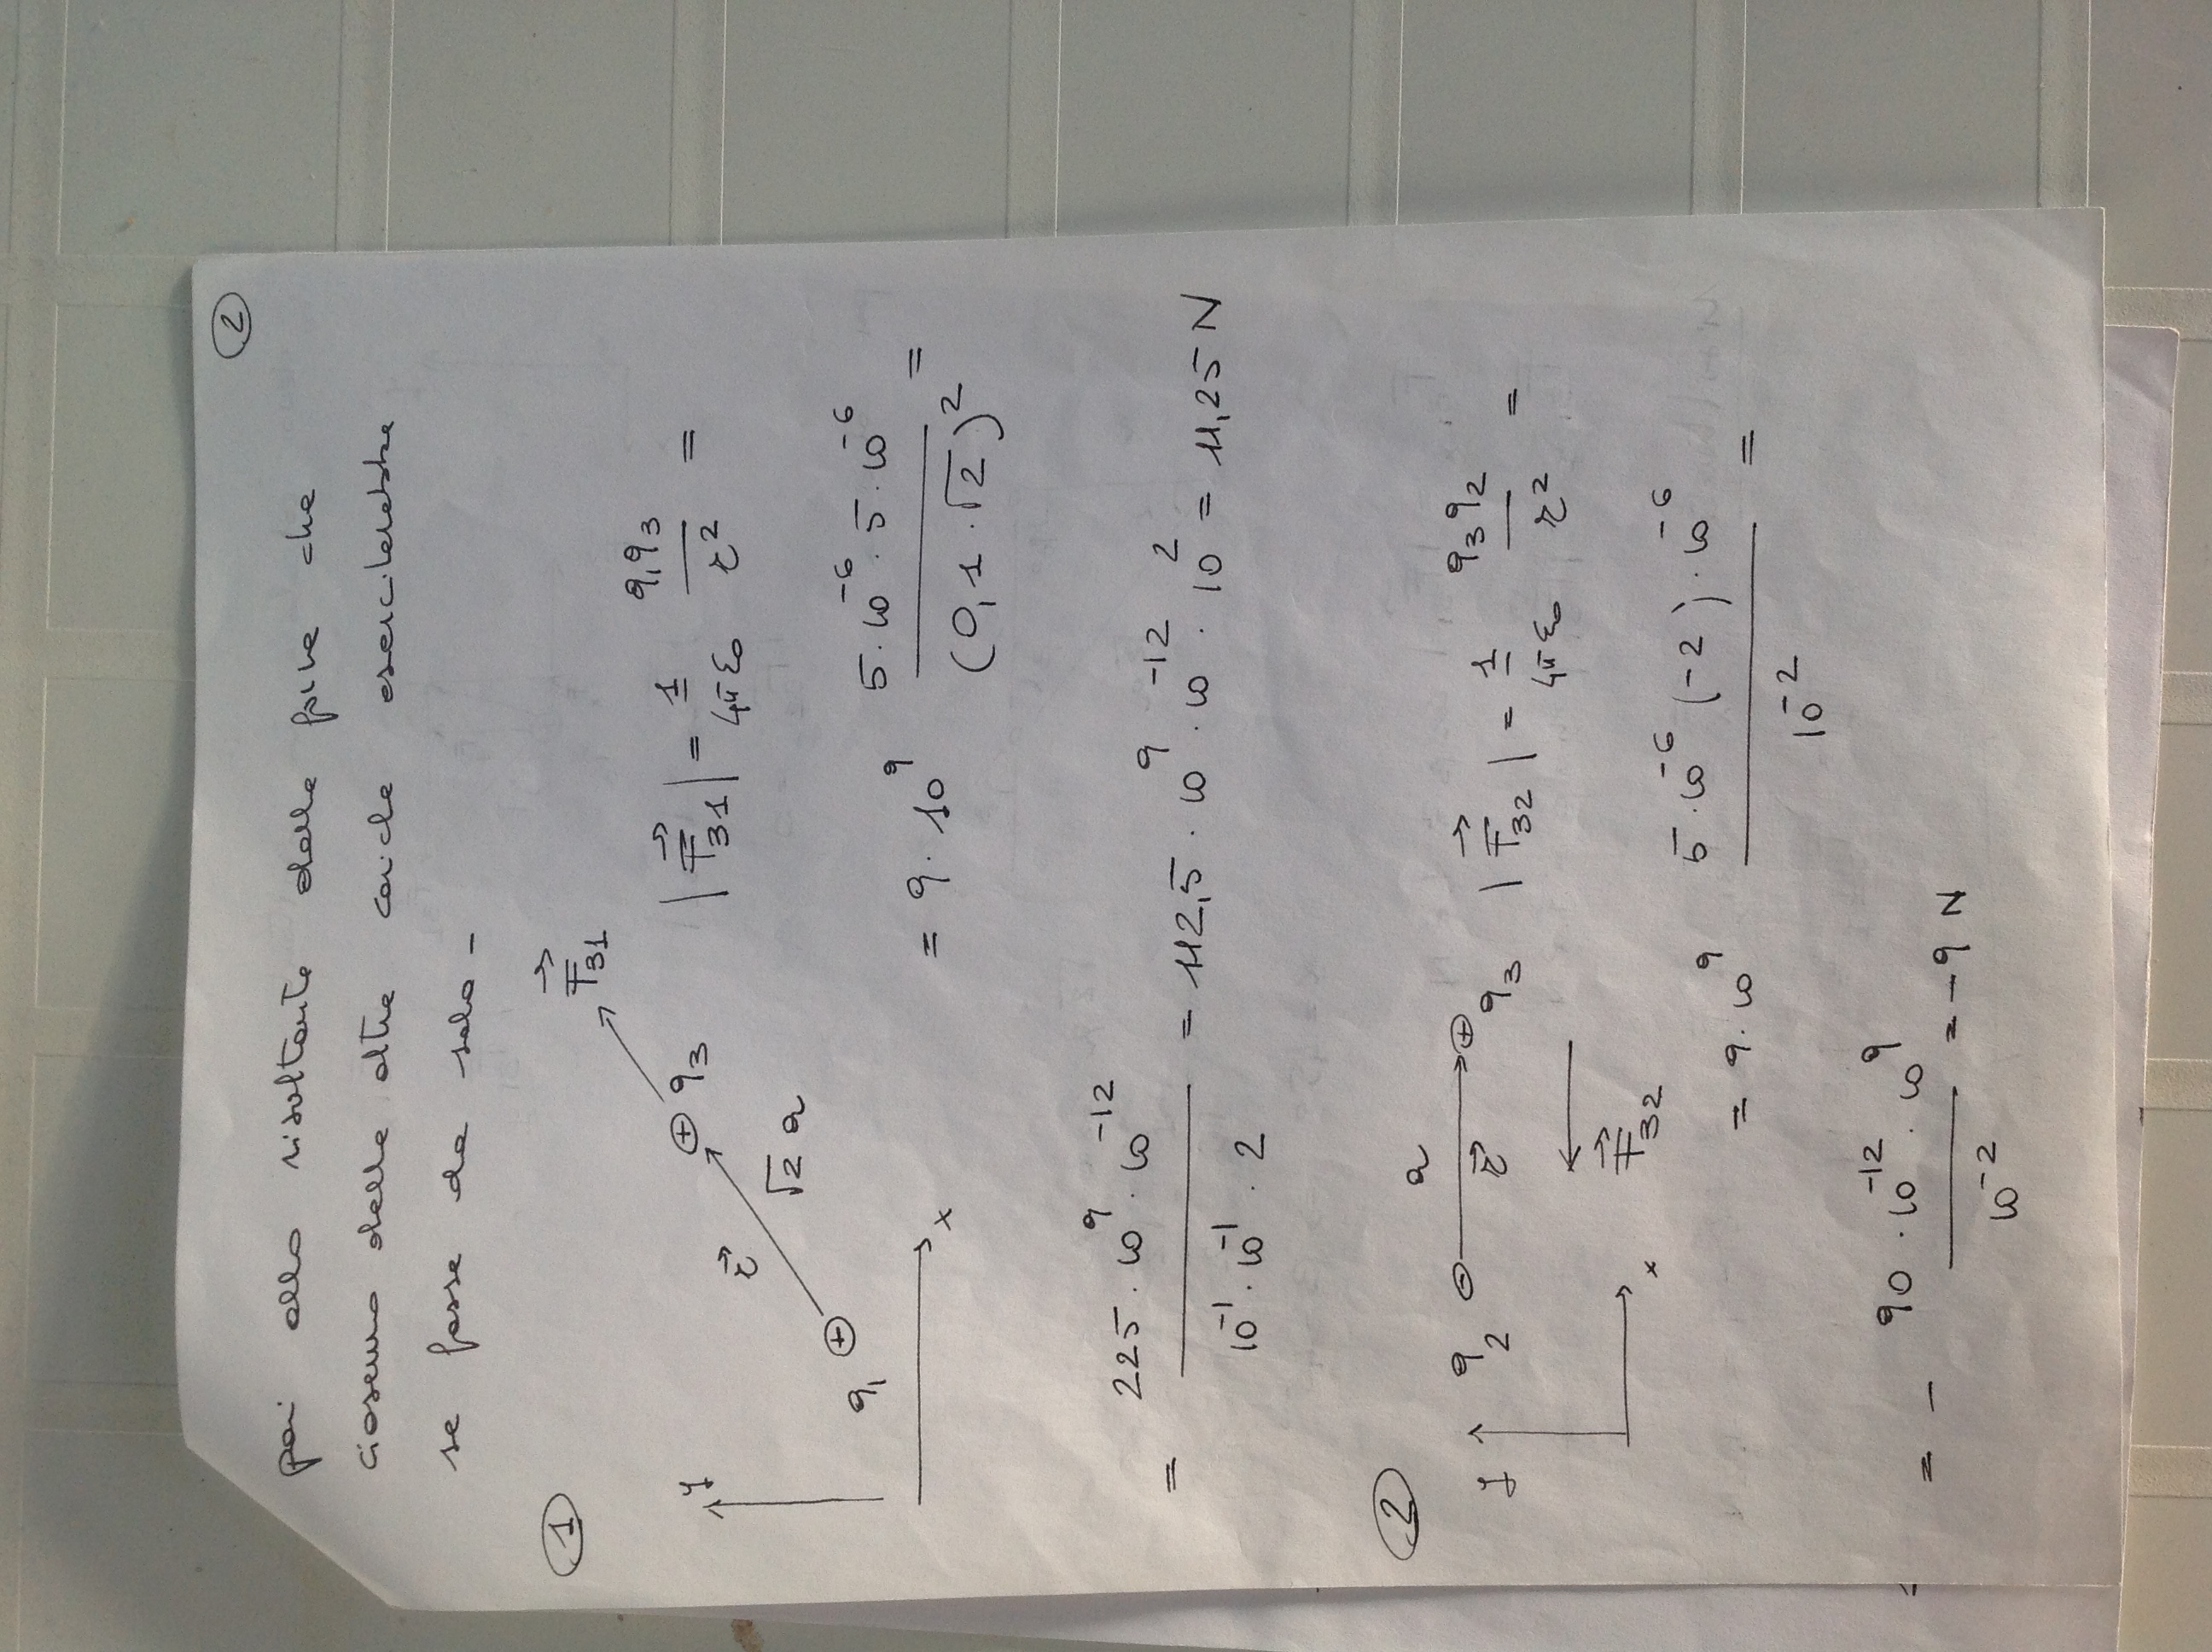 2
pari alla risultante delle forze che
ciascuna delle altre cariche eserciterebbe
se fosse da sola -
1
F⃗₃₁
q₃
y
r⃗
√2 a
q₁
x
|F⃗₃₁| = 1/(4πε₀) q₁q₃/r² =
= 9 · 10⁹ (5 · 10⁻⁶ · 5 · 10⁻⁶)/(0,1 · √2)² =
= (225 · 10⁹ · 10⁻¹²)/(10⁻¹ · 10⁻¹ · 2) = 112,5 · 10⁹ · 10⁻¹² · 10² = 11,25 N
2
a
y q₂ - r⃗ + q₃ |F⃗₃₂| = 1/(4πε₀) q₃q₂/r² =
x F⃗₃₂
= 9 · 10⁹ (5 · 10⁻⁶ (-2) · 10⁻⁶)/10⁻² =
= - (90 · 10⁻¹² · 10⁹)/10⁻² = -9 N